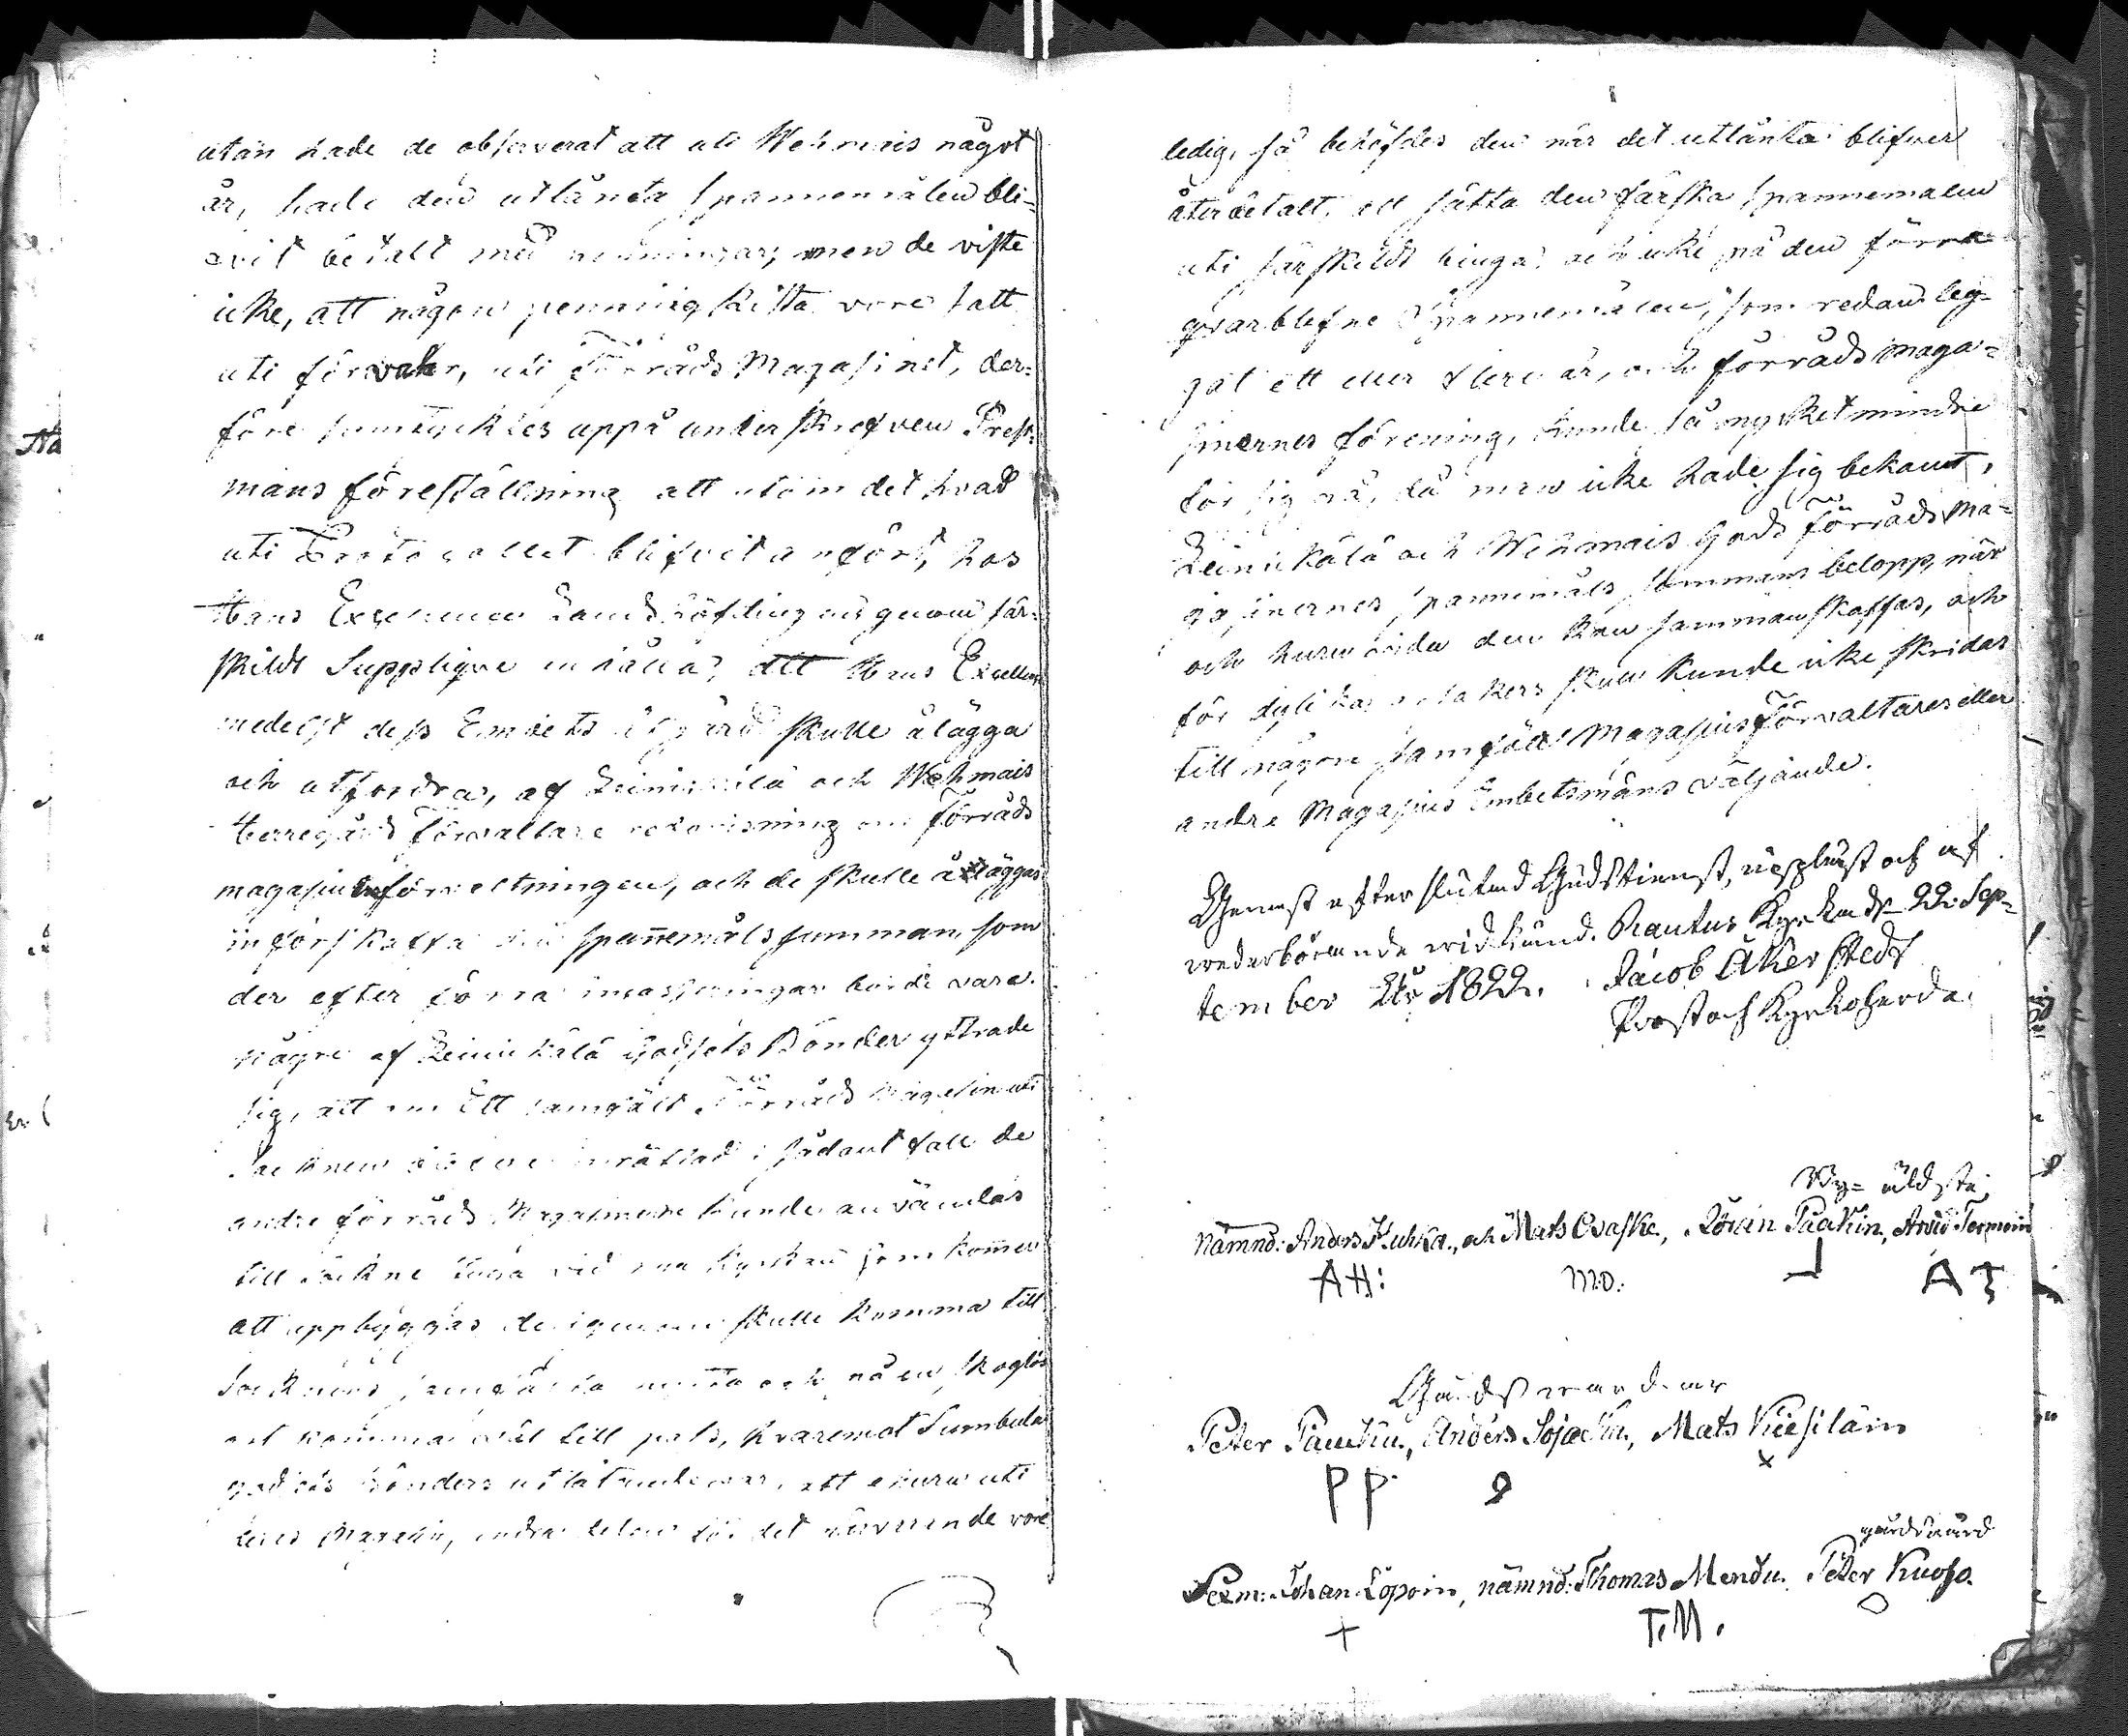 utan hade de observerat att uti Wehmais något
år, hade den utlånta spannemålen bli-
vit betalt med penningar, men de viste
icke, att någon penning kista vore satt
uti förvahr, uti Förråds Magasinet, der-
före samtycktes uppå underskrefven Prest-
mans föreställning att utom det hvad
uti Protocollet blifvit anfördt, hos
Hans Excellence Landshöfdingen genom sär-
skildt Supplique anhålla, att Hans Excellence
medelst dess Embets åtgärd skulle ålägga
och utfordra, af Leinikälä och Wehmais
Herregårds Förvaltare redovisning om förråds
magasins förvaltningen, och de skulle åläggas
införskaffa den spannemåls summan, som
der efter förra insasseringar borde vara.
Några af Leinikälä Godsets Bönder yttrade
sig, att om Ett samfält Förråds Magasin uti
Socknen blefve inrättad i sådant fall de
andre förråds Magasinerne kunde användas
till Sockne stuga vid nya kyrkan som kommer
att uppbyggas derigenom skulle komma till
Socknens samfälta nytta och nåen skoglös
ort komma väl till pass, hvaremot Sumbula
godsets bönders utlåtande var, att ehuru uti
deras Magasin, endra delen för det närvarande vore
ledig, så behöfdes den när det utlånta blifver
återbetalt, att sätta den färska spannemålen
uti särskildt binga, och icke på den förra
qvarblefne Spannemålen, som redan leg-
gat ett eller flere år, och förråds maga-
sinernes förening, kunde så mycket mindre
för sig gå, då man icke hade sig bekant,
Leinikälä och Wehmais Gods förråds Ma-
gasinernes spannemåls summans belopp, när
och huruvida den kan sammanskaffas, och
för dylika orsakers skull kunde icke skridas
till någon samfält Magasins Förvaltares eller
andre Magasins Embetsmäns väljande.
Genast efter slutad Gudstienst, uppläst och af
wederbörande widkänd. Rautus Kyrka d. 22. Sep-
tember År 1822. Jacob Åkerstedt
Prost och Kyrkoherde.
By-äldste
Nämnd: Anders Huhka, och Mats Ovaska, Törvin Paakin, Arvid Termoin
AH: MO. AT
Gudswardar
Peter Paukku, Anders Sojacku, Mats Kiesiläin
PP X
gudsvärd
Sexm: Johan Loponin, nämnd: Thomas Mendu. Peter Kuosa.
+ T.M.